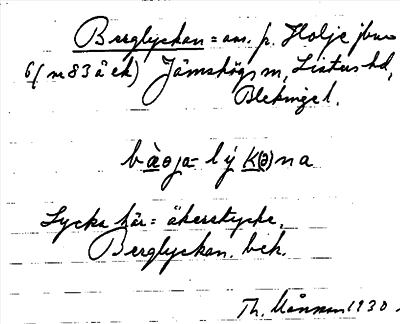 Berglyckan = om. p. Holje jbu
6/(nr 83 åek) Jämshögs sn, Listers hd,
Blekinge l.
bàəja-lý K(ə)na
Lycka här = åkerstycke.
Berglyckan. bek.
Th. Månsson 1930.